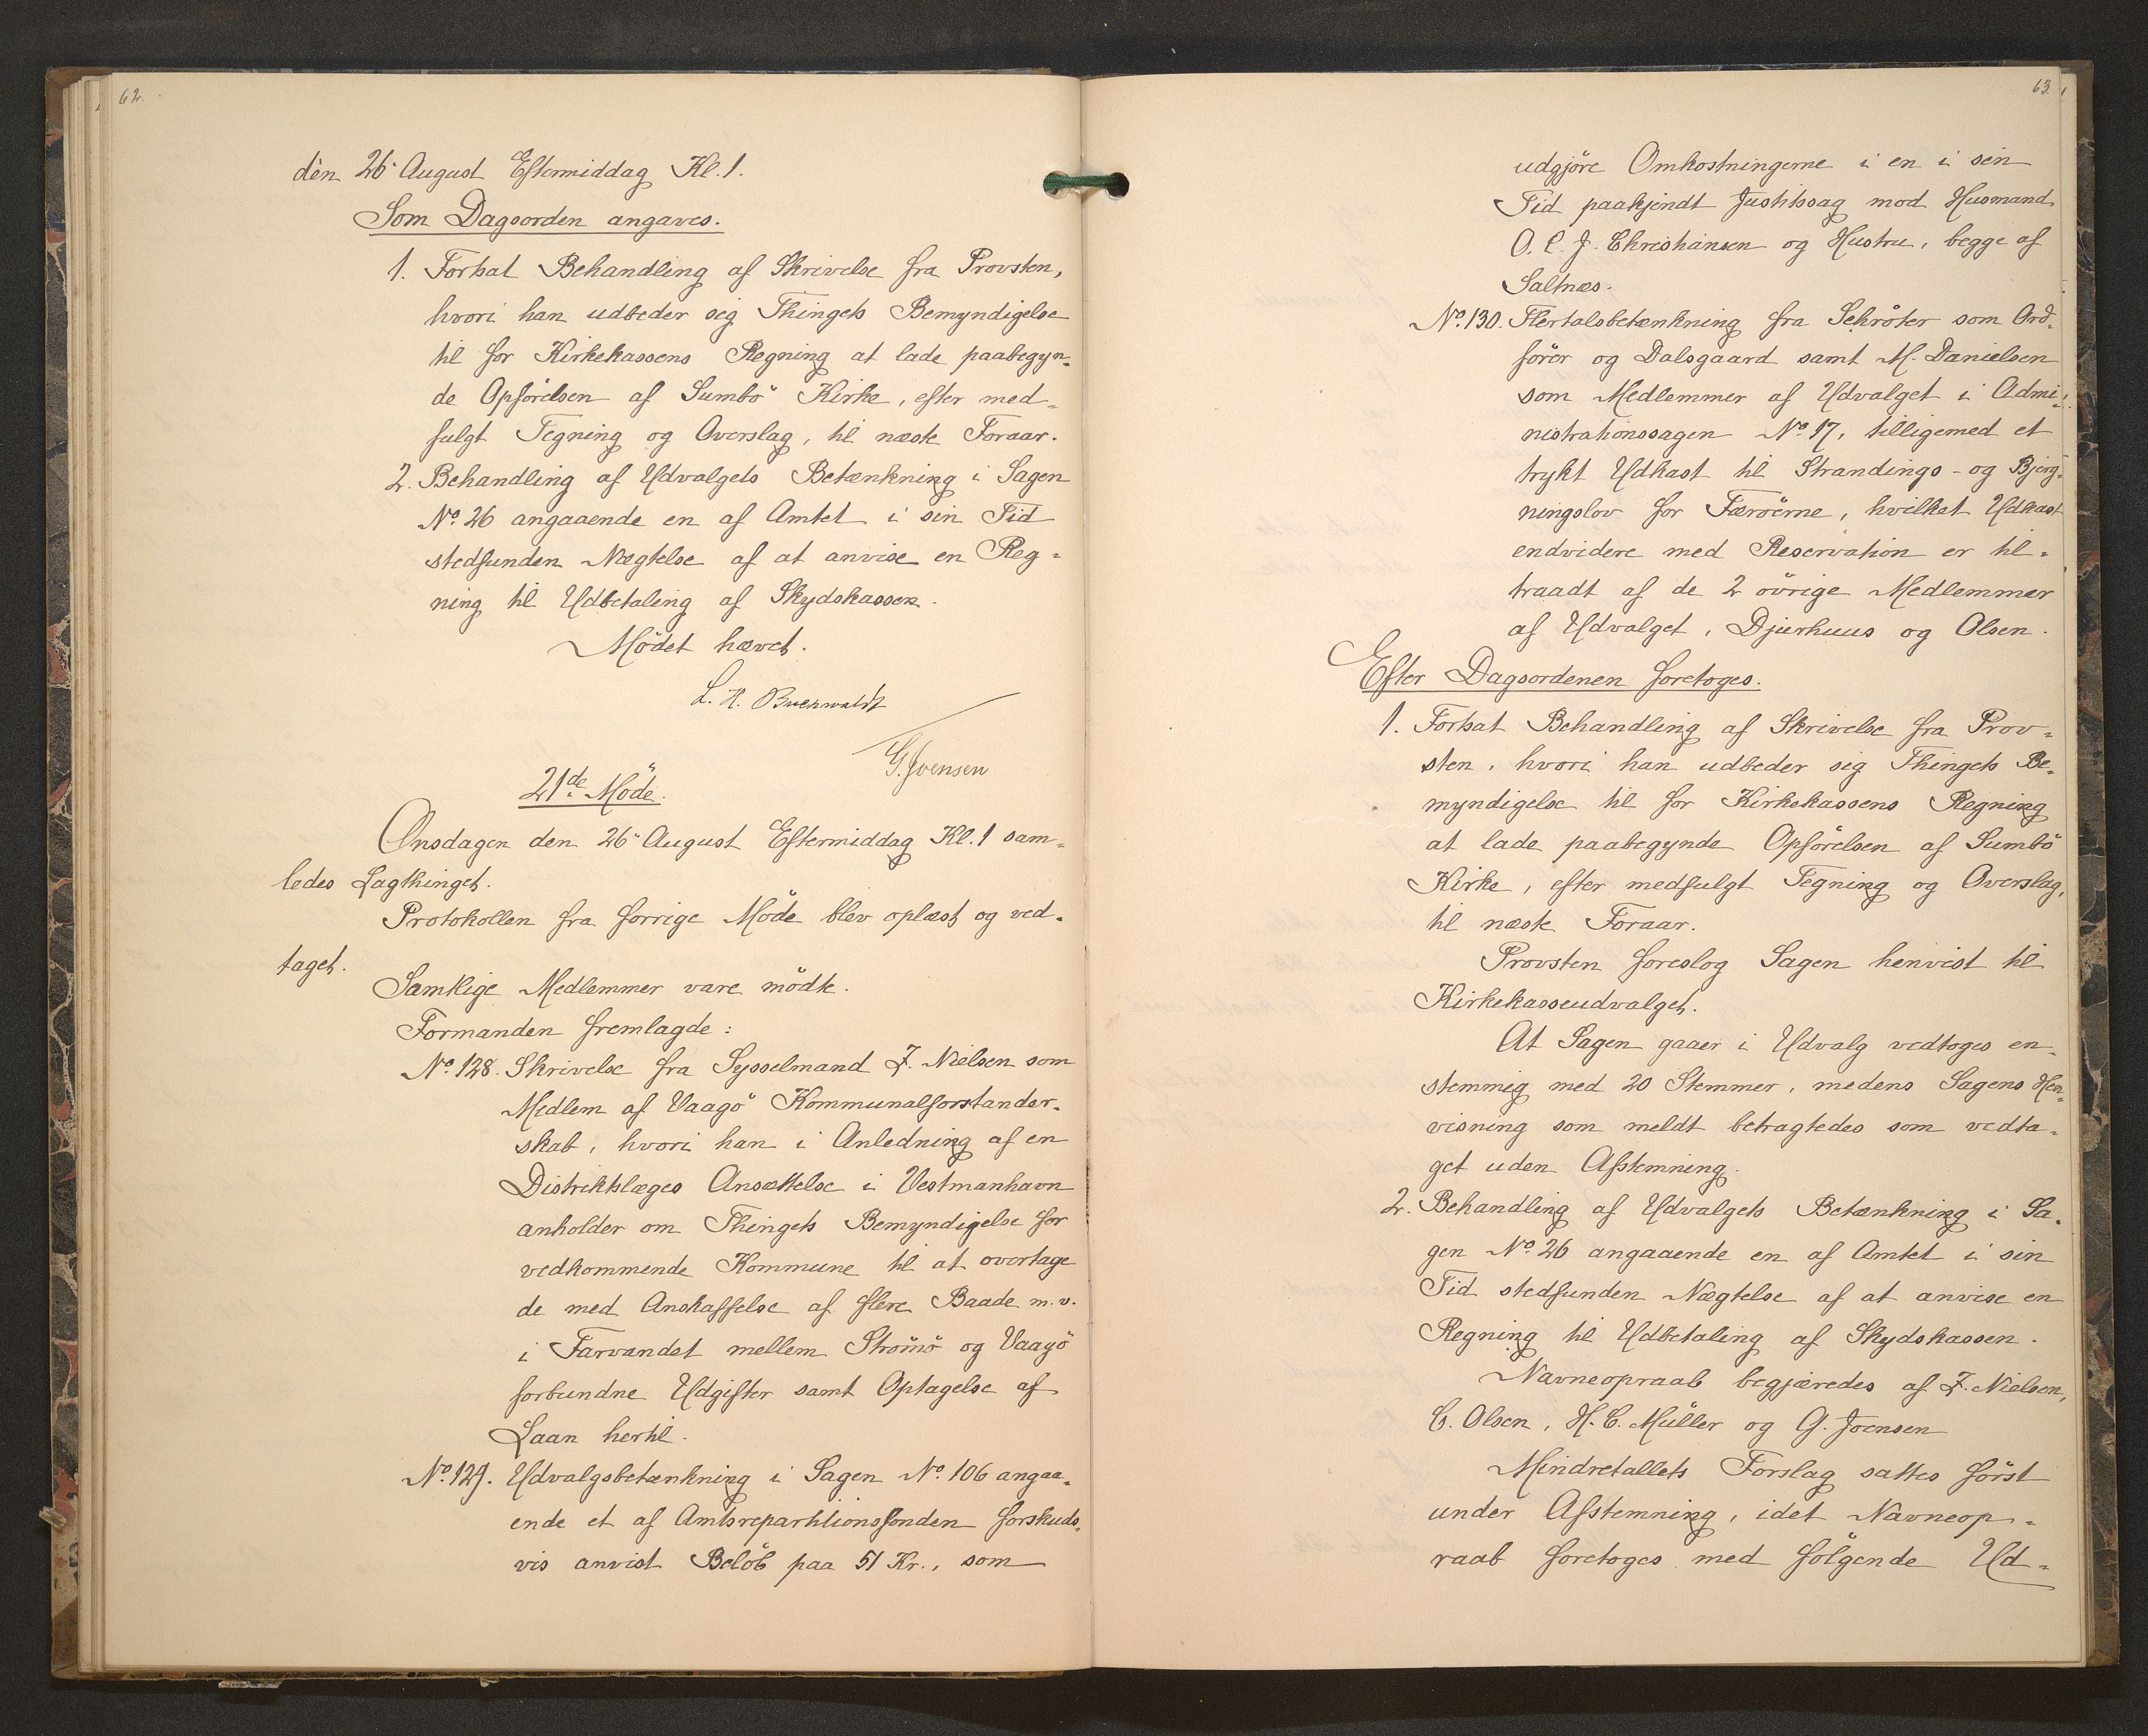 62.
den 26 August Eftermiddag Kl. 1.
Som Dagsorden angaves.
1. Fortsat Behandling af Skrivelse fra Provsten,
hvori han udbeder sig Thingets Bemyndigelse
til for Kirkekassens Regning at lade paabegyn-
de Opförelsen af Sumbö Kirke, efter med-
fulgt Tegning og Overslag, til næste Foraar.
2. Behandling af Udvalgets Betænkning i Sagen
No. 26 angaaende en af Amtet i sin Tid
stedfunden Nægtelse af at anvise en Reg-
ning til Udbetaling af Skydskassen.
Mödet hævet.
L. H. Buchwaldt
G. Joensen
21de Möde.
Onsdagen den 26 August Eftermiddag Kl. 1 sam-
ledes Lagthinget.
Protokollen fra forrige Möde blev oplæst og ved-
taget.
Samtlige Medlemmer vare mödte.
Formanden fremlagde:
No. 128. Skrivelse fra Sysselmand Z. Nielsen som
Medlem af Vaagö Kommunalforstander-
skab, hvori han i Anledning af en
Distriktslæges Ansættelse i Vestmanhavn
anholder om Thingets Bemyndigelse for
vedkommende Kommune til at overtage
de med Anskaffelse af flere Baade m. v.
i Farvandet mellem Strömö og Vaagö
forbundne Udgifter samt Optagelse af
Laan hertil.
No. 129. Udvalgsbetænkning i Sagen No. 106 angaa-
ende et af Amtsrepartitionsfonden forskuds-
vis anvist Belöb paa 51 Kr., som
63.
udgjöre Omkostningerne i en i sin
Tid paakjendt Justitssag mod Husmand
O. C. J. Christiansen og Hustru, begge af
Saltnæs.
No. 130. Flertalsbetænkning fra Schröter som Ord-
förer og Dalsgaard samt M. Danielsen
som Medlemmer af Udvalget i Admi-
nistrationssagen No. 17, tilligemed et
trykt Udkast til Strandings- og Bjerg-
ningslov for Færöerne, hvilket Udkast
endvidere med Reservation er til-
traadt af de 2 övrige Medlemmer
af Udvalget, Djurhuus og Olsen.
Efter Dagsordenen foretoges.
1. Fortsat Behandling af Skrivelse fra Prov-
sten, hvori han udbeder sig Thingets Be-
myndigelse til for Kirkekassens Regning
at lade paabegynde Opförelsen af Sumbö
Kirke, efter medfulgt Tegning og Overslag,
til næste Foraar.
Provsten foreslog Sagen henvist til
Kirkekasseudvalget.
At Sagen gaaer i Udvalg vedtoges en-
stemmig med 20 Stemmer, medens Sagens Hen-
visning som meldt betragtedes som vedta-
get uden Afstemning.
2. Behandling af Udvalgets Betænkning i Sa-
gen No. 26 angaaende en af Amtet i sin
Tid stedfunden Nægtelse af at anvise en
Regning til Udbetaling af Skydskassen.
Navneopraab begjæredes af Z. Nielsen,
C. Olsen, H. C. Müller og G. Joensen
Mindretallets Forslag sattes först
under Afstemning, idet Navneop-
raab foretoges med fölgende Ud-